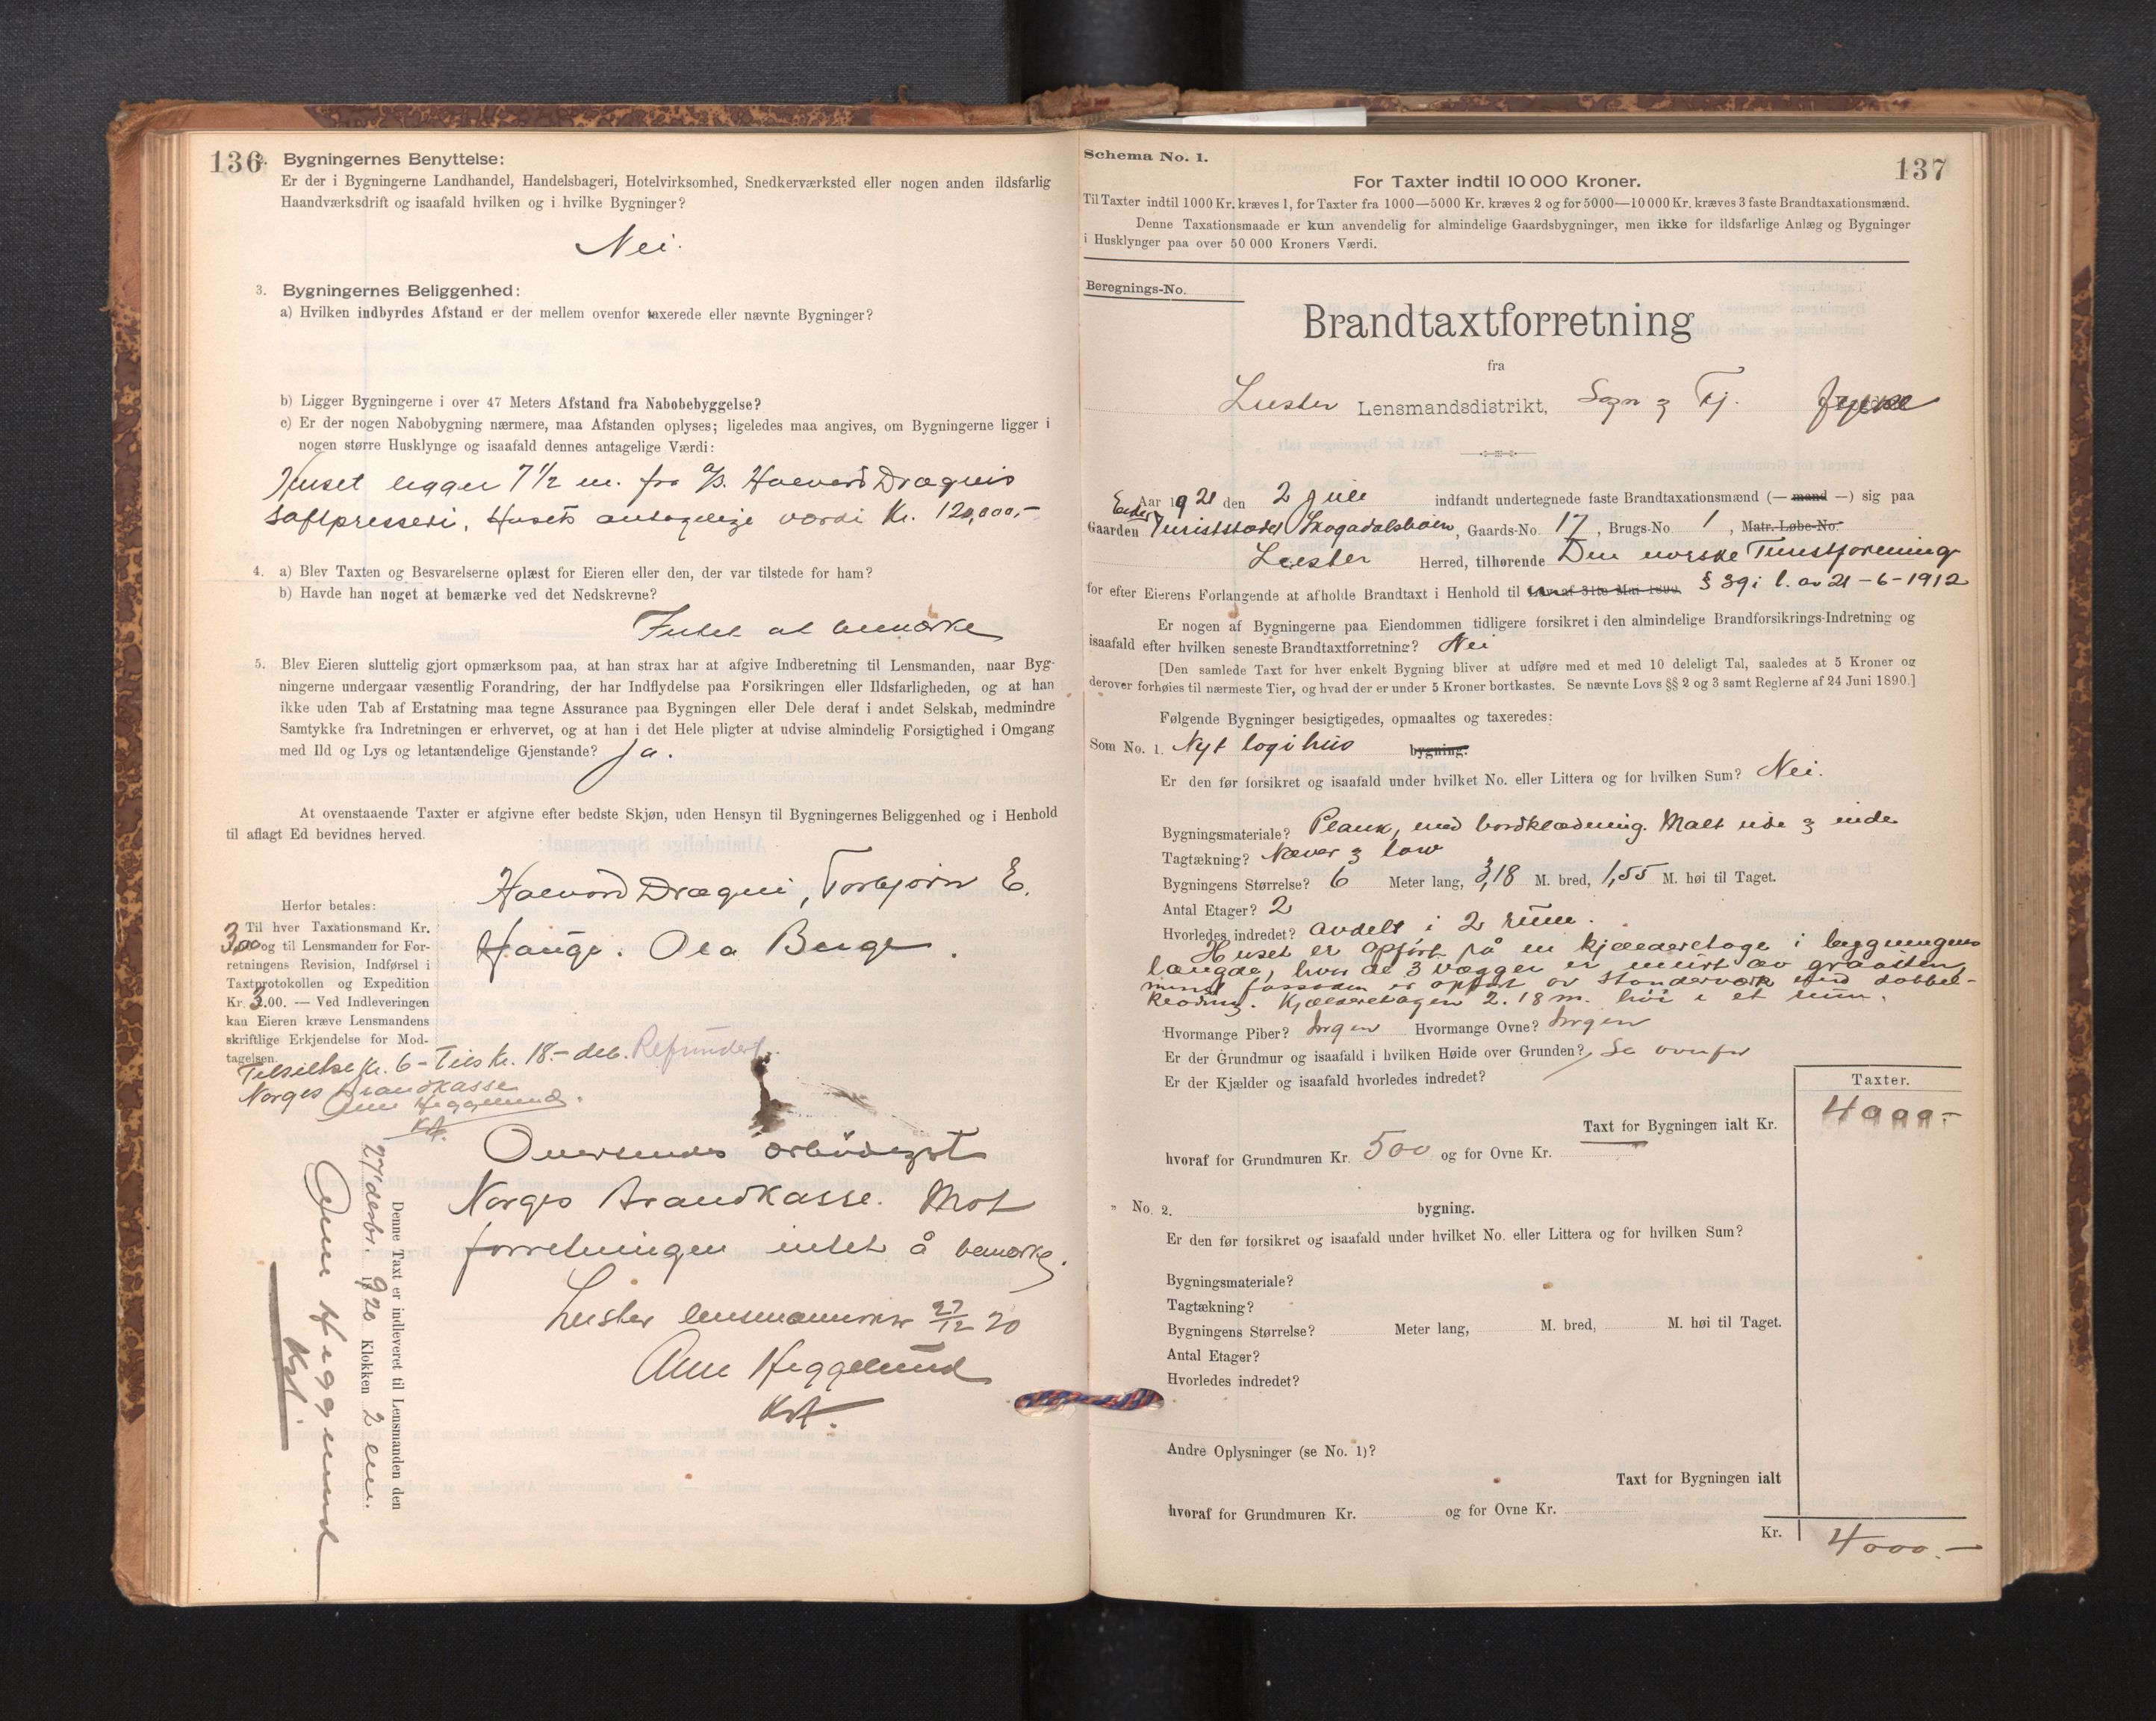 136
2. Bygningernes Benyttelse:
Er der i Bygningerne Landhandel, Handelsbageri, Hotelvirksomhed, Snedkerværksted eller nogen anden ildsfarlig
Haandværksdrift og isaafald hvilken og i hvilke Bygninger?
Nei.
3. Bygningernes Beliggenhed:
a) Hvilken indbyrdes Afstand er der mellem ovenfor taxerede eller nævnte Bygninger?
b) Ligger Bygningerne i over 47 Meters Afstand fra Nabobebyggelse?
c) Er der nogen Nabobygning nærmere, maa Afstanden oplyses; ligeledes maa angives, om Bygningerne ligger i
nogen større Husklynge og isaafald dennes antagelige Værdi:
Huset ligger 7 1/2 m. fra A/S. Halvard Drægnis
saftpresseri. Husets antagelige værdi Kr. 120,000,-
4. a) Blev Taxten og Besvarelserne oplæst for Eieren eller den, der var tilstede for ham?
b) Havde han noget at bemærke ved det Nedskrevne?
Intet at bemærke
5. Blev Eieren sluttelig gjort opmærksom paa, at han strax har at afgive Indberetning til Lensmanden, naar Byg-
ningerne undergaar væsentlig Forandring, der har Indflydelse paa Forsikringen eller Ildsfarligheden, og at han
ikke uden Tab af Erstatning maa tegne Assurance paa Bygningen eller Dele deraf i andet Selskab, medmindre
Samtykke fra Indretningen er erhvervet, og at han i det Hele pligter at udvise almindelig Forsigtighed i Omgang
med Ild og Lys og letantændelige Gjenstande? Ja.
At ovenstaaende Taxter er afgivne efter bedste Skjøn, uden Hensyn til Bygningernes Beliggenhed og i Henhold
til aflagt Ed bevidnes herved.
Halvord Drægni, Torbjørn E.
Hauge. Ola Berge.
Herfor betales:
Til hver Taxationsmand Kr.
3,00 og til Lensmanden for For-
retningens Revision, Indførsel i
Taxtprotokollen og Expedition
Kr. 3.00. — Ved Indleveringen
kan Eieren kræve Lensmandens
skriftlige Erkjendelse for Mod-
tagelsen.
Kr. 6 - Kr. 18.- Refundert.
Norges Brandkasse
Heggelund.
Kst.
Oversendes ærbödigst
Norges Brandkasse. Mot
forretningen intet å bemærke.
Luster 27/12 20
Heggelund
Kst.
Denne Taxt er indleveret til Lensmanden den
27/decbr. 1920 Klokken 2 em.
Heggelund
Kst.
Schema No. 1.
137
For Taxter indtil 10 000 Kroner.
Til Taxter indtil 1000 Kr. kræves 1, for Taxter fra 1000—5000 Kr. kræves 2 og for 5000—10 000 Kr. kræves 3 faste Brandtaxationsmænd.
Denne Taxationsmaade er kun anvendelig for almindelige Gaardsbygninger, men ikke for ildsfarlige Anlæg og Bygninger
i Husklynger paa over 50 000 Kroners Værdi.
Beregnings-No.
Brandtaxtforretning
fra
Luster Lensmandsdistrikt, Sogn & Fj. fylke
Aar 1921 den 2 juli indfandt undertegnede faste Brandtaxationsmænd (— mand —) sig paa
Gaarden Turiststedet Skogadalsbøen, Gaards-No. 17, Brugs-No. 1, Matr.-Løbe-No.
Luster Herred, tilhørende Den norske Turistforening
for efter Eierens Forlangende at afholde Brandtaxt i Henhold til Lov af 31te Mai 1890. § 39 i l. av 21-6-1912
Er nogen af Bygningerne paa Eiendommen tidligere forsikret i den almindelige Brandforsikrings-Indretning og
isaafald efter hvilken seneste Brandtaxtforretning? Nei
[Den samlede Taxt for hver enkelt Bygning bliver at udføre med et med 10 deleligt Tal, saaledes at 5 Kroner og
derover forhøies til nærmeste Tier, og hvad der er under 5 Kroner bortkastes. Se nævnte Lovs §§ 2 og 3 samt Reglerne af 24 Juni 1890.]
Følgende Bygninger besigtigedes, opmaaltes og taxeredes:
Som No. 1. Nyt logihus bygning.
Er den før forsikret og isaafald under hvilket No. eller Littera og for hvilken Sum? Nei.
Bygningsmateriale? Plank, med bordklædning. Malt ute & inde
Tagtækning? Næver & torv
Bygningens Størrelse? 6 Meter lang, 3,18 M. bred, 1,55 M. høi til Taget.
Antal Etager? 2
Hvorledes indredet? avdelt i 2 rum.
Huset er opført på en kjælderetage i bygningens
længde, hvor de 3 vægger er murt av graasten,
mens fassaden er opført av standerværk med dobbel-
klædning. Kjælderetagen 2.18 m. høi i et rum.
Hvormange Piber? Ingen Hvormange Ovne? Ingen
Er der Grundmur og isaafald i hvilken Høide over Grunden? Se ovenfor
Er der Kjælder og isaafald hvorledes indredet?
Taxter.
Taxt for Bygningen ialt Kr. 4000-
hvoraf for Grundmuren Kr. 500 og for Ovne Kr.
" No. 2. bygning.
Er den før forsikret og isaafald under hvilket No. eller Littera og for hvilken Sum?
Bygningsmateriale?
Tagtækning?
Bygningens Størrelse? Meter lang, M. bred, M. høi til Taget.
Antal Etager?
Hvorledes indredet?
Andre Oplysninger (se No. 1)?
Taxt for Bygningen ialt
hvoraf for Grundmuren Kr. og for Ovne Kr.
Kr. 4000.-